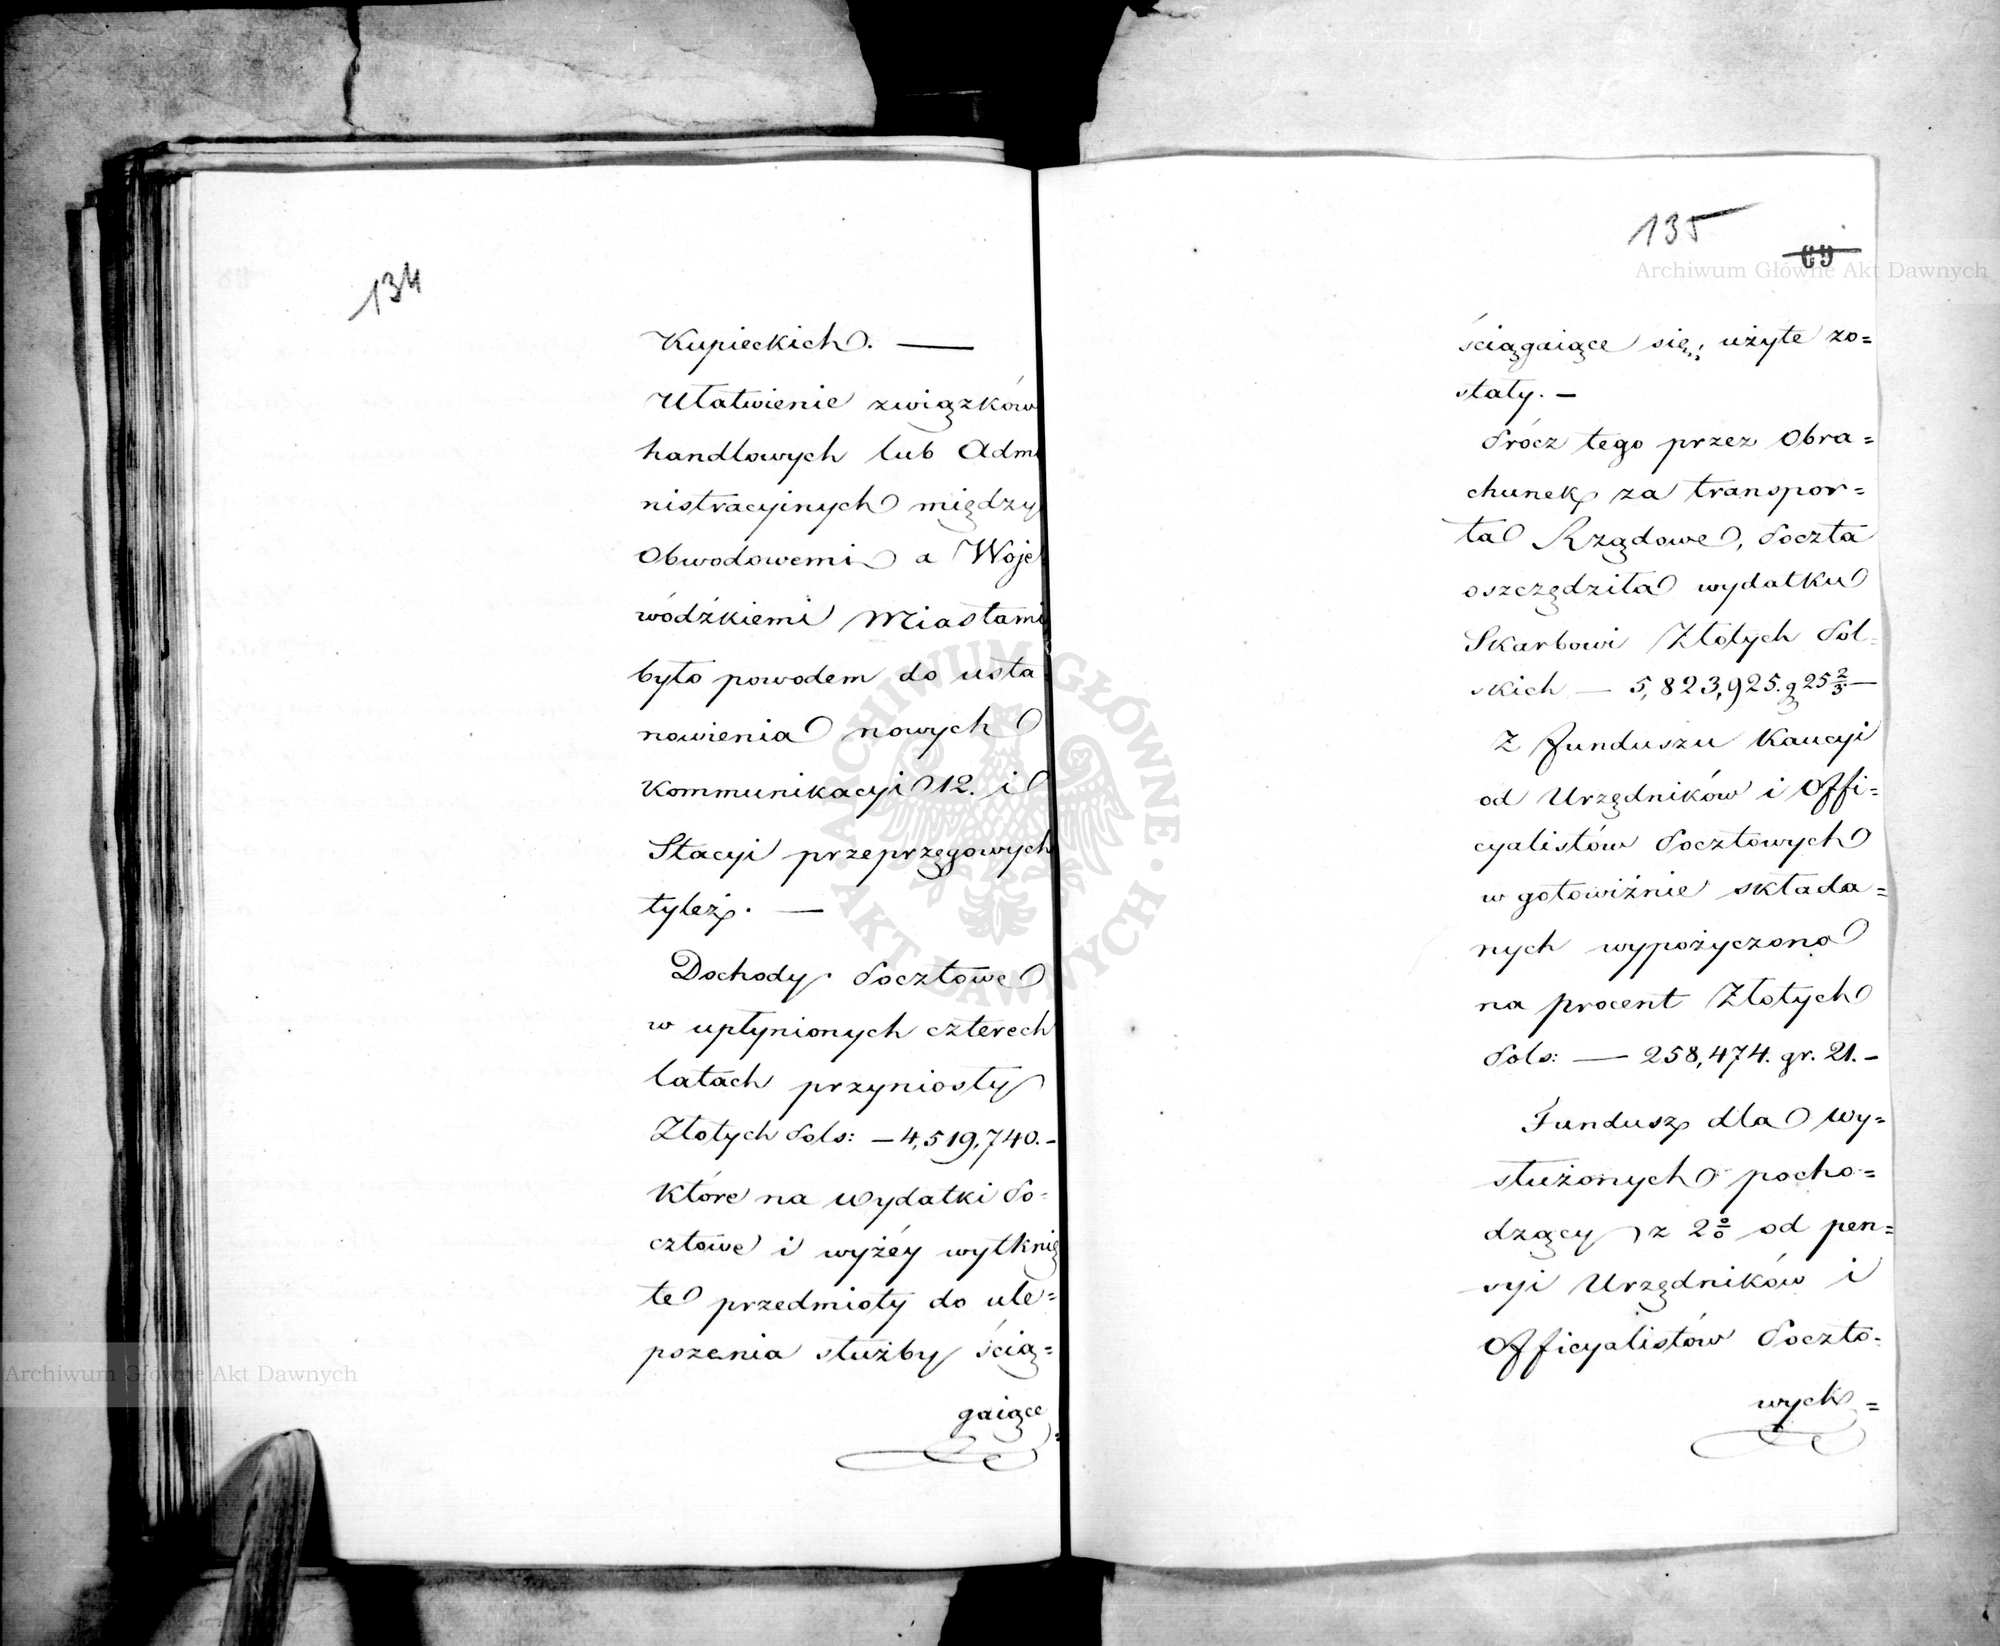 134
Kupieckich. —
Ułatwienie związków
handlowych lub Admi
nistracyjnych między
Obwodowemi a Woje
wódzkiemi Miastami
było powodem do usta
nowienia nowych
Kommunikacyi 12. i
Stacyi przeprzęgowych
tyleż. —
Dochody Pocztowe
w upłynionych czterech
latach przyniosły
Złotych Pols: — 4,519,740. -
które na wydatki Po-
cztowe i wyżéy wytknię
te przedmioty do ule=
pszenia służby ścią=
gaiące
135
69
ściągaiące się; użyte zo=
stały. —
Prócz tego przez Obra=
chunek za transpor=
ta Rządowe, Poczta
oszczędziła wydatku
Skarbowi Złotych Pol-
skich — 5,823,925. g 25 2/3 —
Z funduszu Kaucyi
od Urzędników i Offi=
cyalistów Pocztowych
w gotowiźnie składa=
nych wypożyczono
na procent Złotych
Pols: — 258,474. gr. 21. -
Fundusz dla Wy=
służonych pocho=
dzący z 2 % od pen=
syi Urzędników i
Officyalistów Poczto-
wych =
Archiwum Główne Akt Dawnych
Archiwum Główne Akt Dawnych
ARCHIWUM GŁÓWNE · AKT DAWNYCH ·